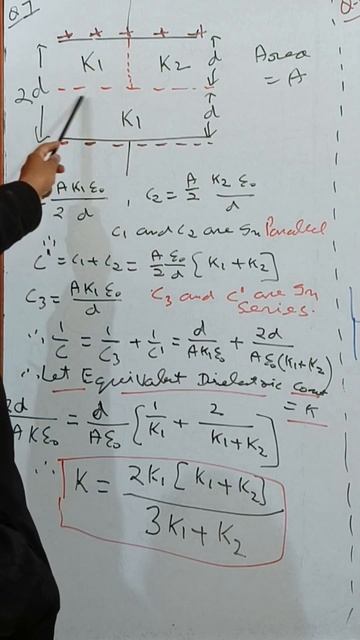 Q 7
+ + + + +
K1 K2 d
Area
= A
2d
K1 d
AK1ε0/2 d , C2 = A/2 K2 ε0/d
C1 and C2 are In Parallel
C' = C1 + C2 = A ε0/2 d [K1 + K2]
C3 = AK1ε0/d C3 and C' are In
Series.
∴ 1/C = 1/C3 + 1/C' = d/AK1ε0 + 2d/Aε0(K1+K2)
∴ Let Equivalent Dielectric Const
= K
2d/AKε0 = d/Aε0 [1/K1 + 2/K1+K2]
∴ K = 2K1[K1+K2]/3K1+K2